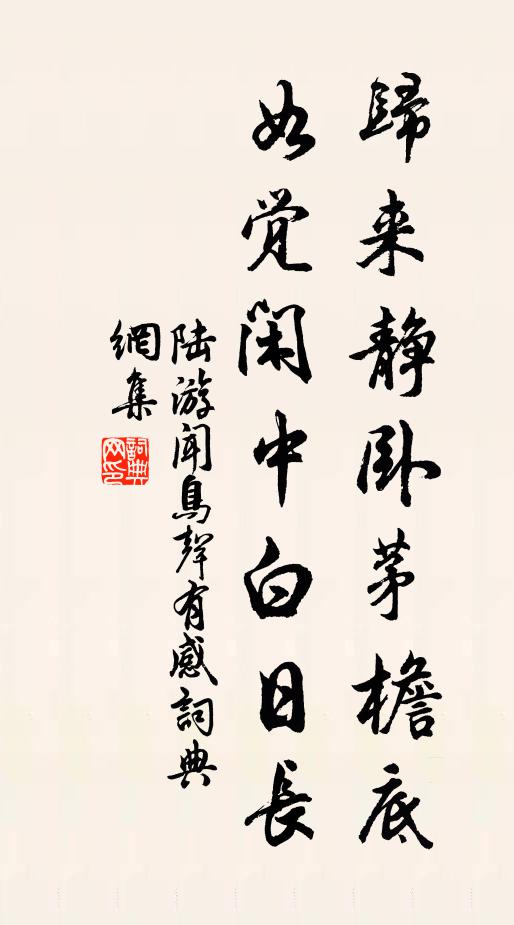 歸来静卧茅檐底
始觉闲中白日長
陆游闻鳥聲有感詞典
網集
詞典网印